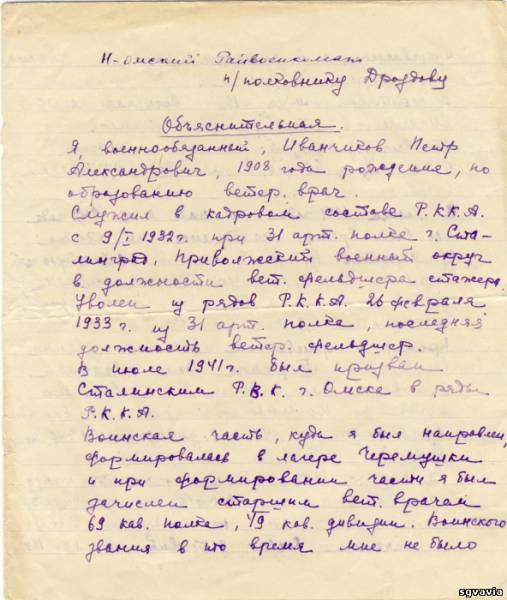 Н-Омский Райвоенкомат
п/полковнику Дроздову
Объяснительная.
Я, военнообязанный, Иванчиков Петр
Александрович 1908 года рождение, по
образованию ветер. врач.
Служил в кадровом составе Р.К.К.А.
с 9/I 1932г. при 31 арт. полке г. Ста-
линград, Приволжский военный округ
в должности вет. фельдшера стажера.
Уволен из рядов Р.К.К.А. 26 февраля
1933 г. из 31 арт. полка, последняя
должность ветер. фельдшер.
В июле 1941 г. был призван
Сталинским Р.В.К. г. Омска в ряды
Р.К.К.А.
Воинская часть, куда я был направлен,
формировалась в лагере Черемушки
и при формировании части я был
зачислен старшим вет. врачем
69 кав. полка, 49 кав. дивизии. Воинского
звания в это время мне не было
sgvavia